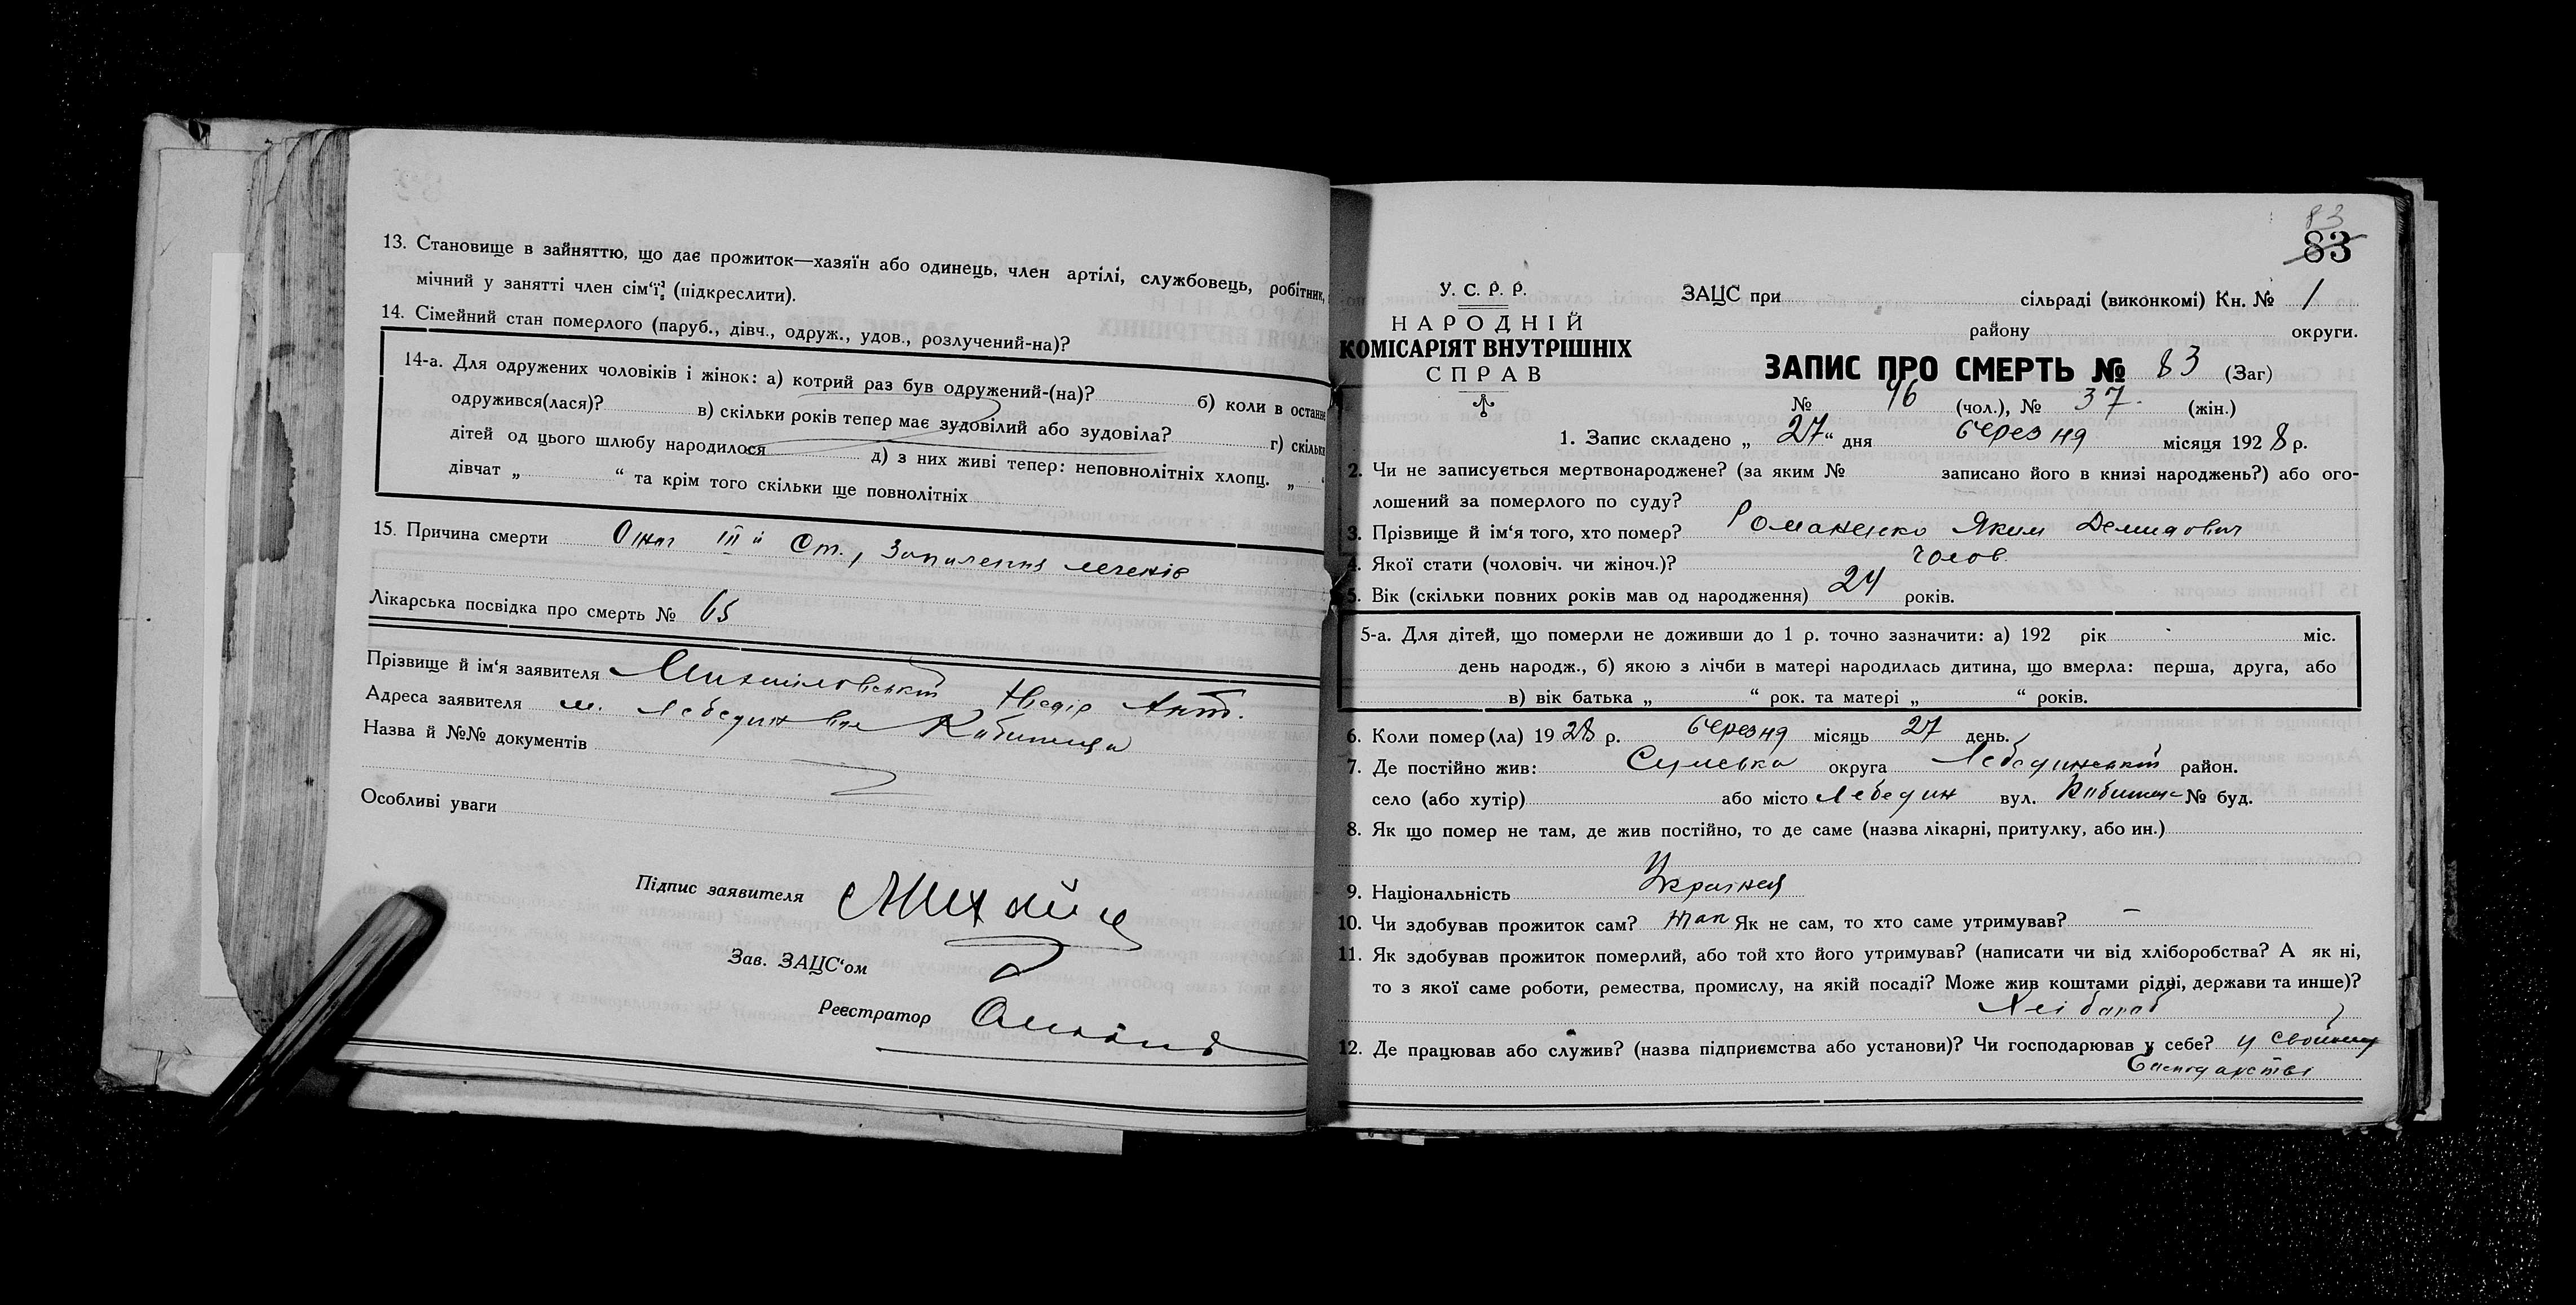 13. Становище в зайняттю, що дає прожиток—хазяїн або одинець, член артілі, службовець, робітник,
мічний у занятті член сім‘ї; (підкреслити).
14. Сімейний стан померлого (паруб., дівч., одруж., удов., розлучений-на)?
14-а. Для одружених чоловіків і жінок: а) котрий раз був одружений-(на)? б) коли в останнє
одружився(лася)? в) скільки років тепер має зудовілий або зудовіла? г) скільки
дітей од цього шлюбу народилося д) з них живі тепер: неповнолітніх хлопц. „ “
дівчат „ “ та крім того скільки ще повнолітніх
15. Причина смерти III й Ст., Запалення легенів
Лікарська посвідка про смерть № 65
Прізвище й ім‘я заявителя Ант.
Адреса заявителя м. Лебедин вул Кобижча
Назва й №№ документів
Особливі уваги
Підпис заявителя
Зав. ЗАЦС‘ом
Реєстратор
83
83
У. С. Р. Р.
НАРОДНІЙ
КОМІСАРІЯТ ВНУТРІШНІХ
СПРАВ
ЗАЦС при сільраді (виконкомі) Кн. № 1
району округи.
ЗАПИС ПРО СМЕРТЬ № 83 (Заг)
№ 46 (чол.), № 37. (жін.)
1. Запис складено „ 27 “ дня березня місяця 1928 р.
2. Чи не записується мертвонароджене? (за яким № записано його в книзі народжень?) або ого-
лошений за померлого по суду?
3. Прізвище й ім‘я того, хто помер? Романенко Яким Демидович
4. Якої стати (чоловіч. чи жіноч.)? чолов.
5. Вік (скільки повних років мав од народження) 24 років.
5-а. Для дітей, що померли не доживши до 1 р. точно зазначити: а) 192 рік міс.
день народж., б) якою з лічби в матері народилась дитина, що вмерла: перша, друга, або
в) вік батька „ “ рок. та матері „ “ років.
6. Коли помер(ла) 1928 р. березня місяць 27 день.
7. Де постійно жив: Сумська округа Лебединський район.
село (або хутір) або місто Лебедин вул. № буд.
8. Як що помер не там, де жив постійно, то де саме (назва лікарні, притулку, або ин.)
9. Національність Українец
10. Чи здобував прожиток сам? так Як не сам, то хто саме утримував? —
11. Як здобував прожиток померлий, або той хто його утримував? (написати чи від хліборобства? А як ні,
то з якої саме роботи, ремества, промислу, на якій посаді? Може жив коштами рідні, держави та инше)?
Хлібороб
12. Де працював або служив? (назва підприємства або установи)? Чи господарював у себе? у свойому
Господарстві